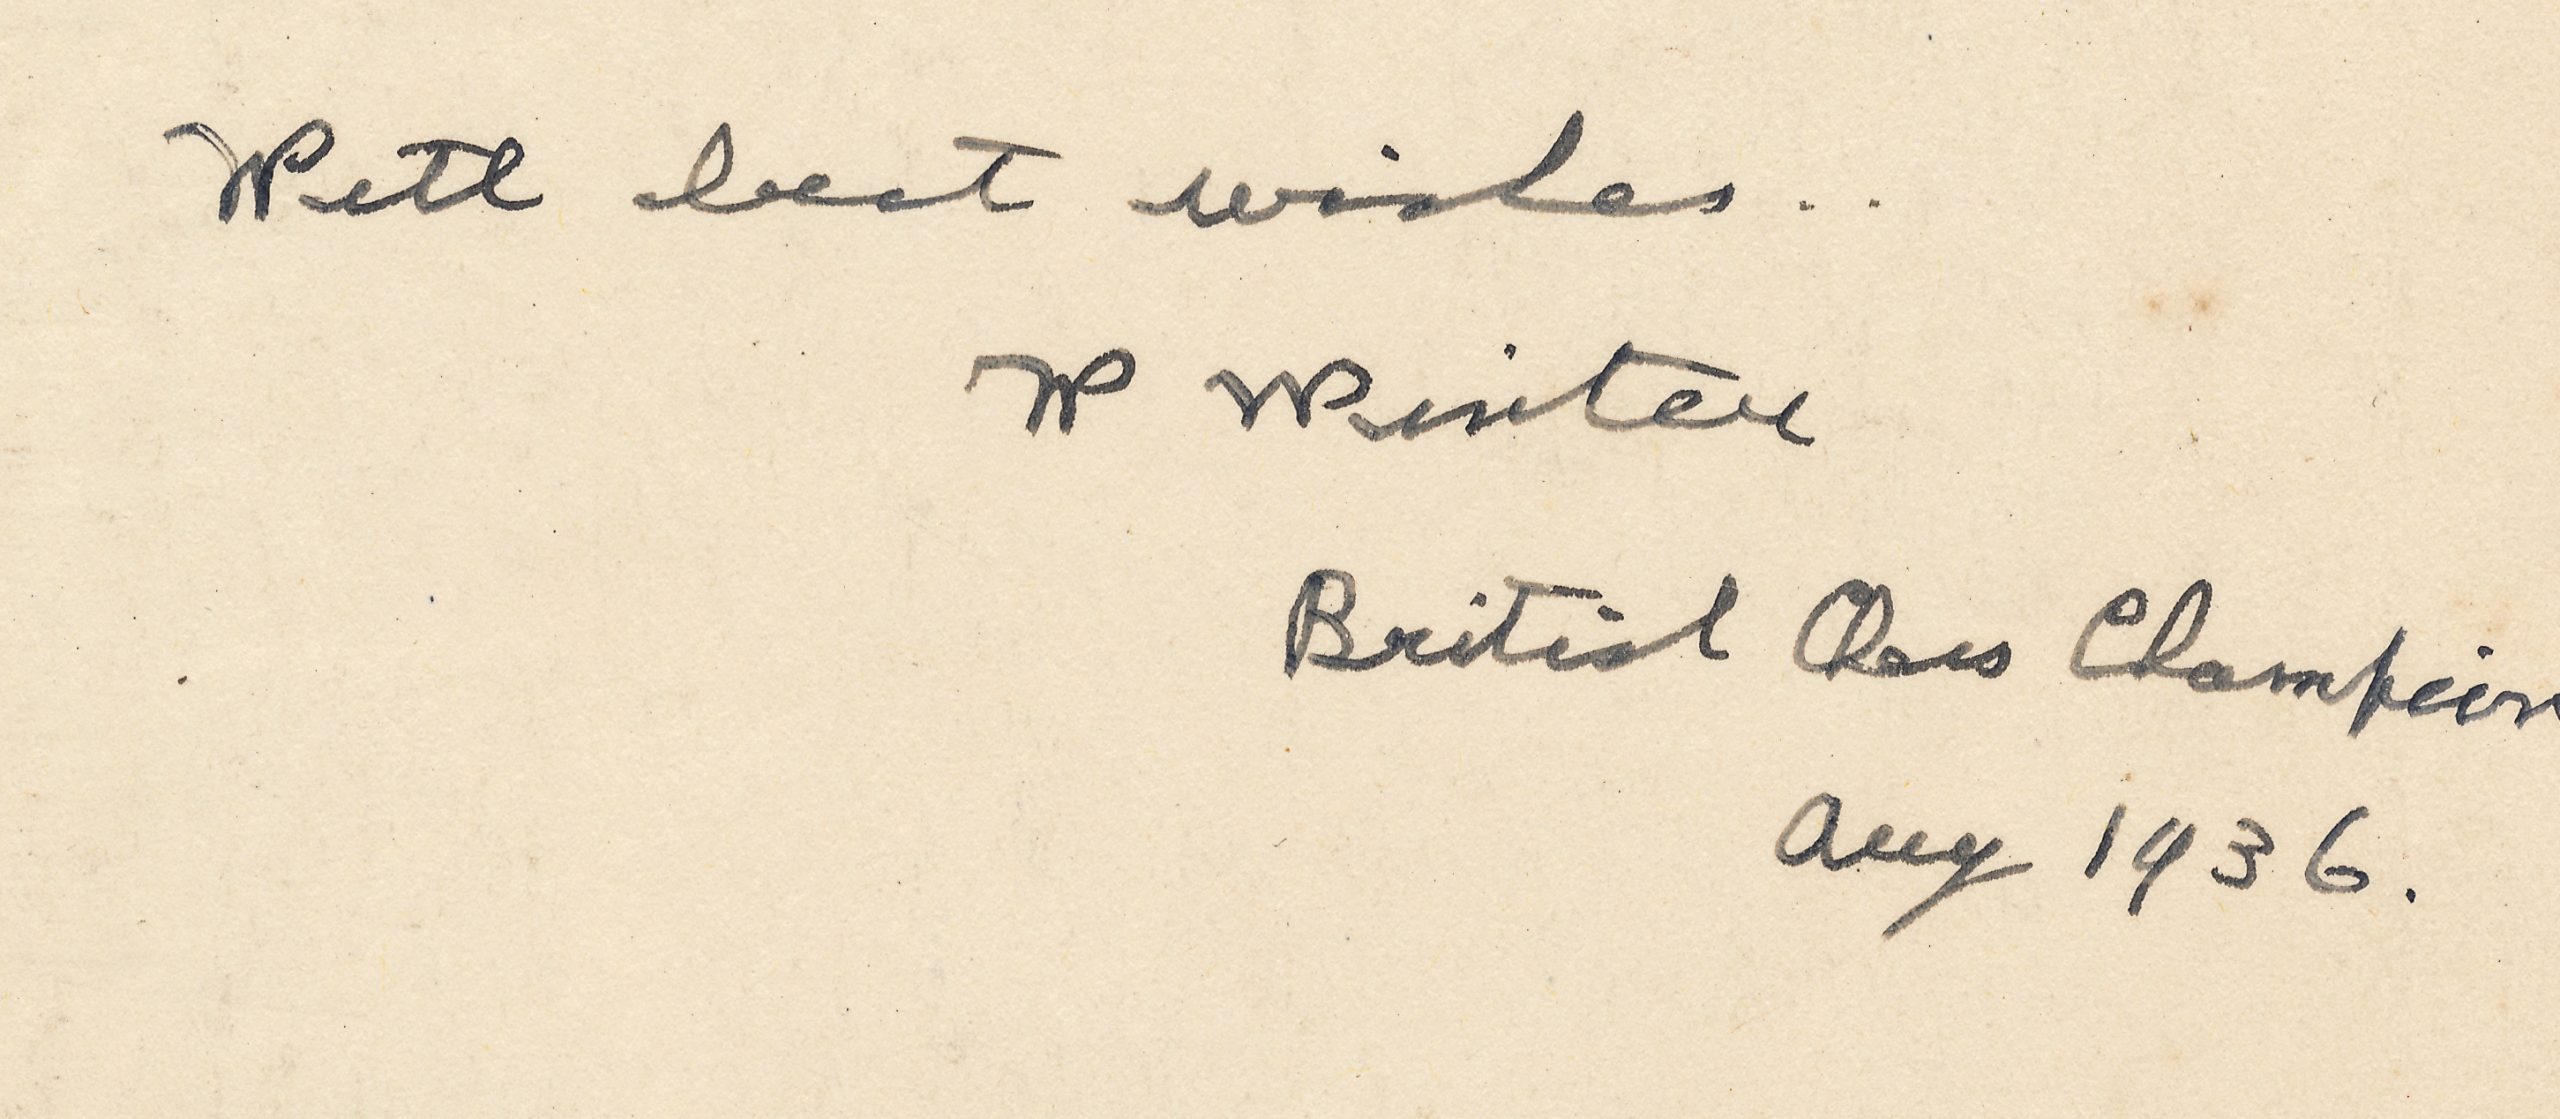 With best wishes..
W Winter
British Chess Champion
Aug 1936.